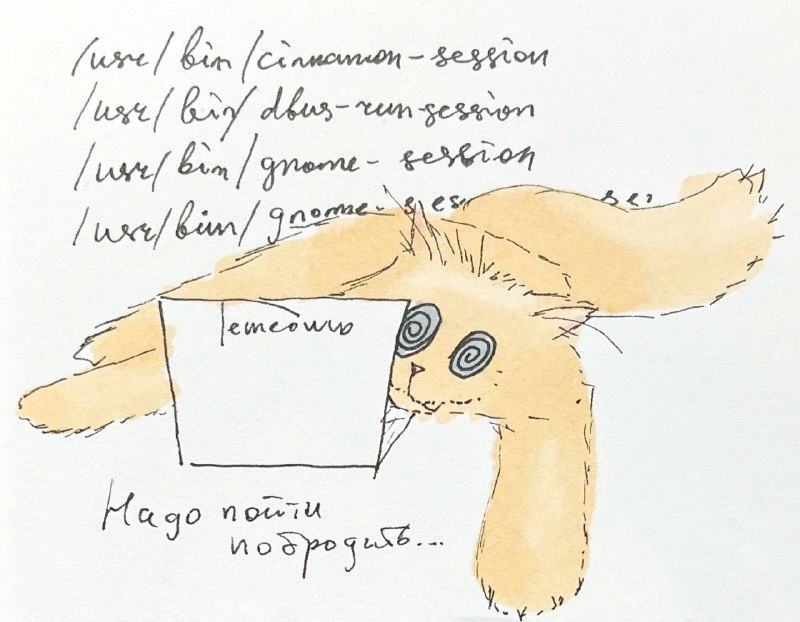 /usr/bin/cinnamon-session
/usr/bin/dbus-run-session
/usr/bin/gnome-session
/usr/bin/gnome-ses se
Надо пойти
побродить...